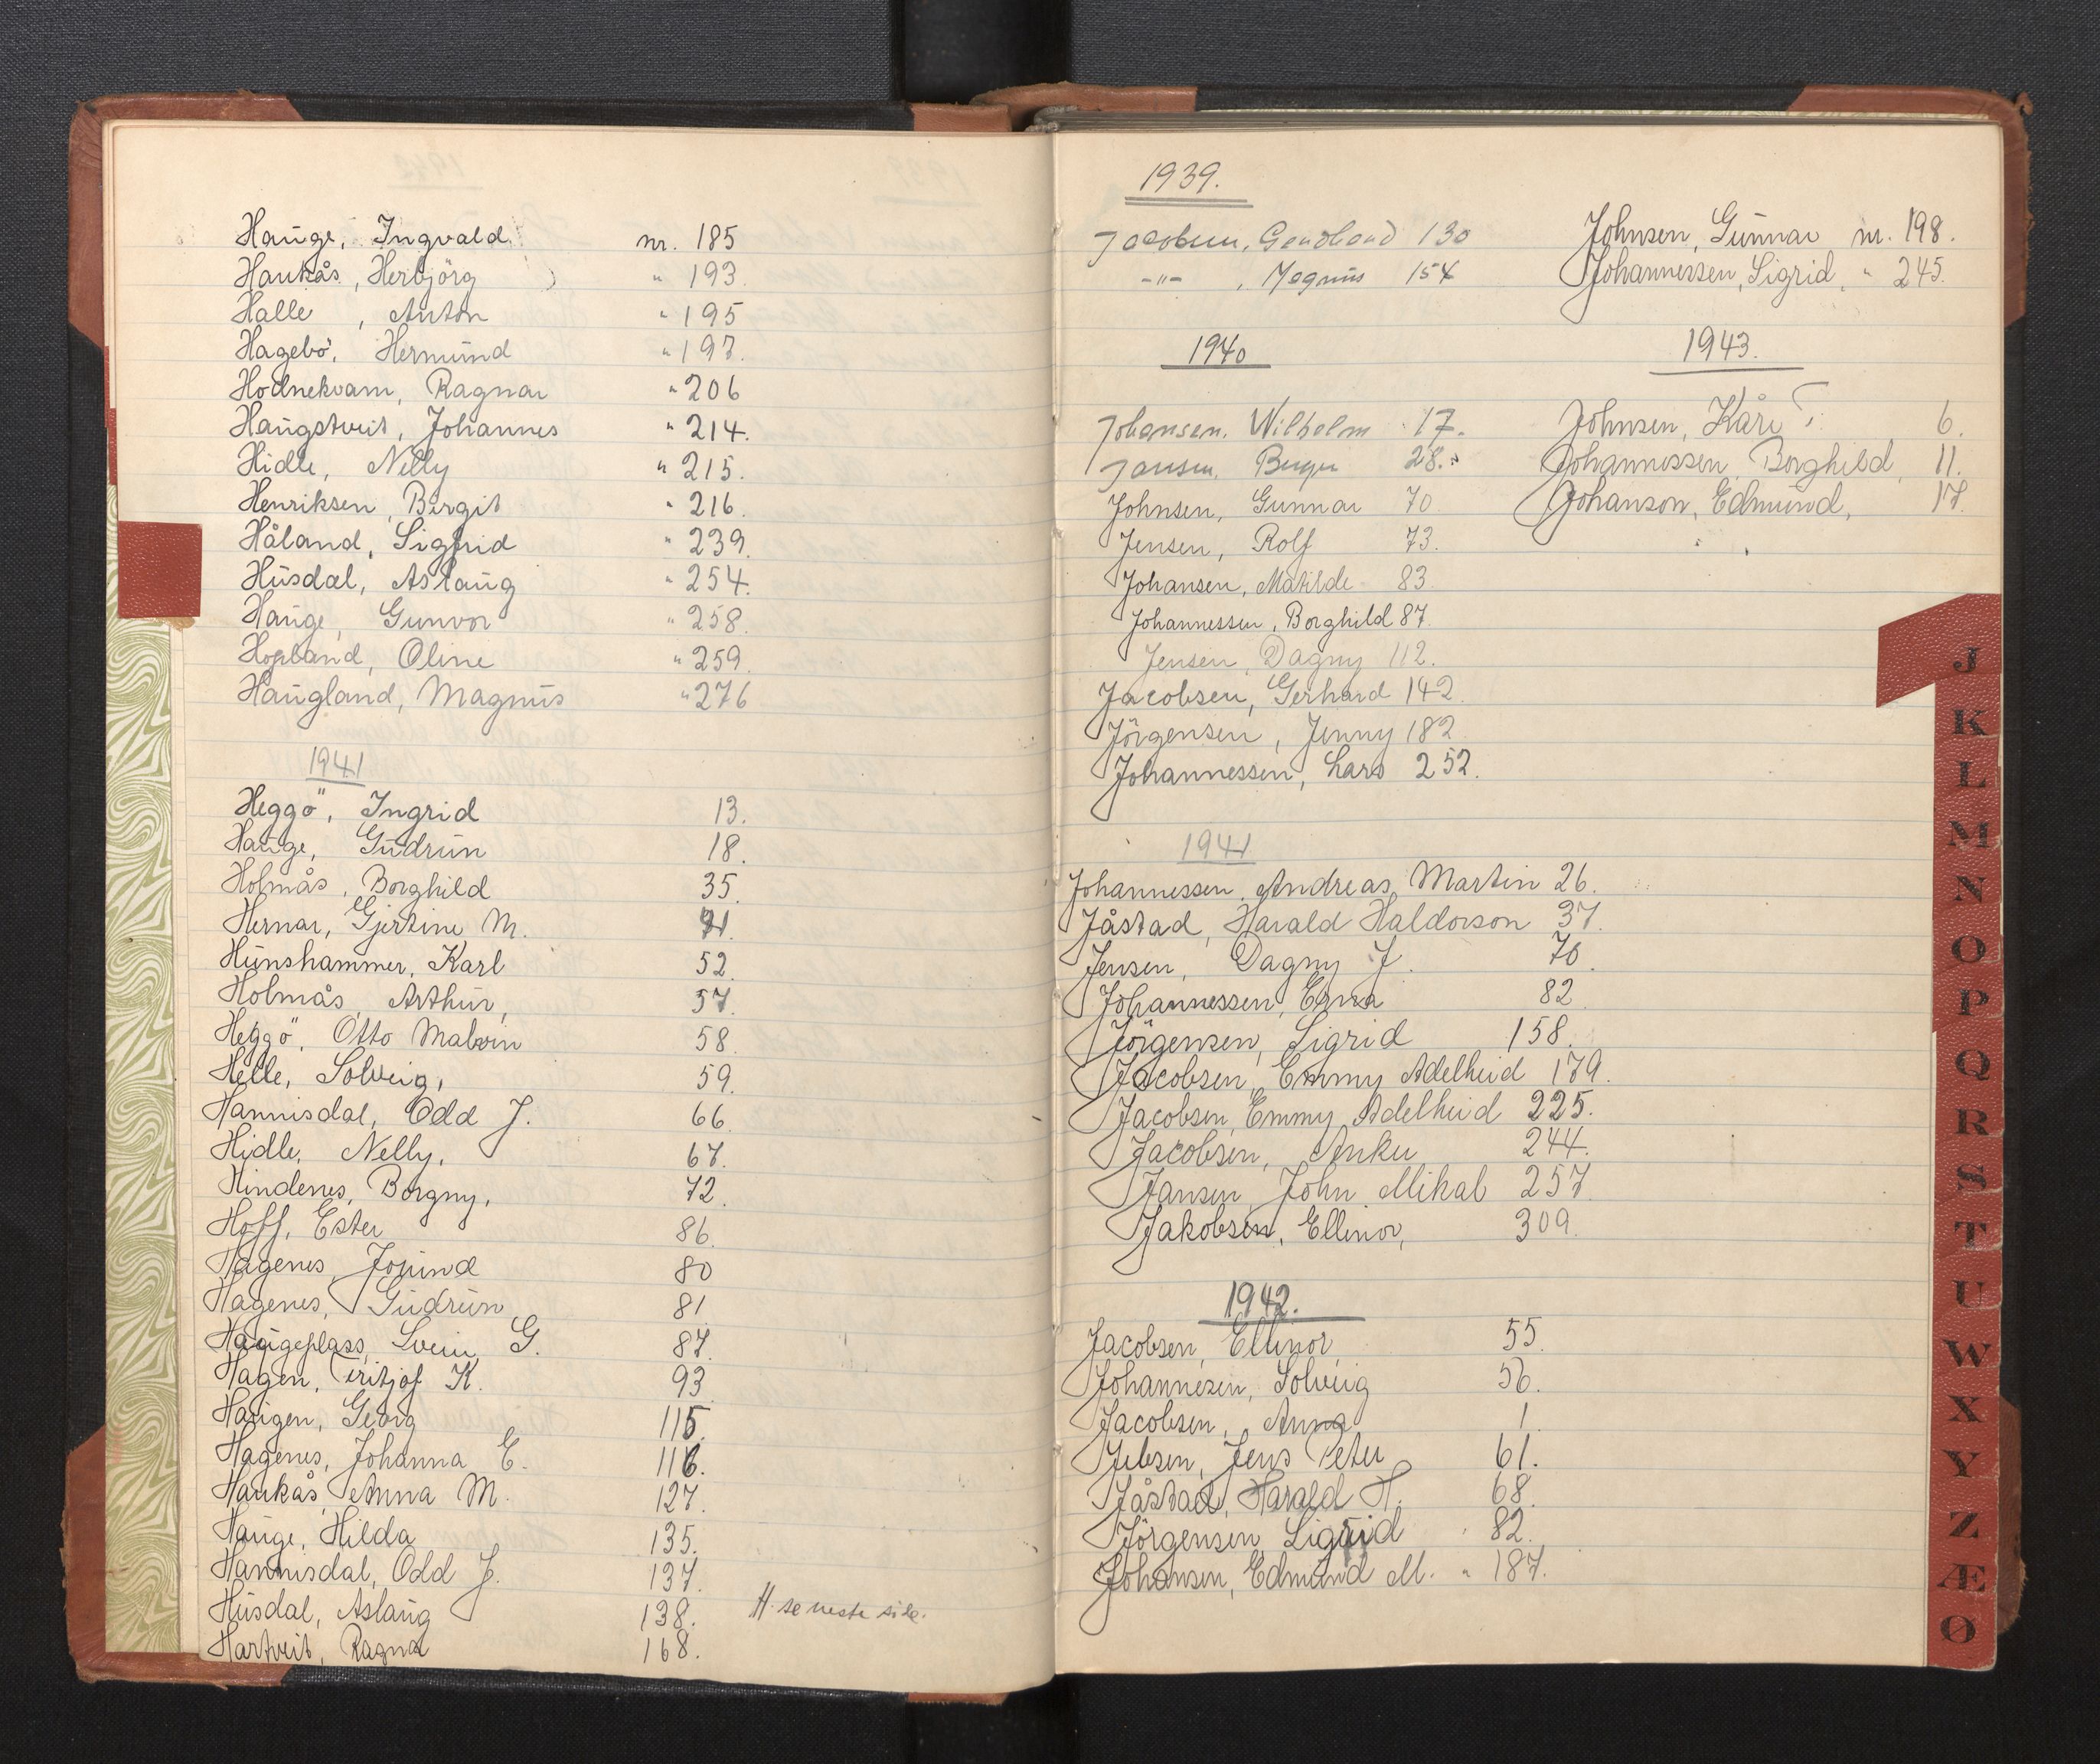 Hauge, Ingvald nr. 185
Haukås, Herbjörg " 193.
Halle, Anton " 195
Hagebö, Hermund " 197.
Hodnekvam, Ragnar " 206
Haugstveit, Johannes " 214.
Hidle, Nelly " 215.
Henriksen, Birgit " 216.
Håland, Sigfrid " 239.
Husdal, Aslaug " 254.
Hauge, Gunvor " 258.
Hopland, Oline " 259.
Haugland, Magnus " 276
1941
Heggö, Ingrid 13.
Hauge, Gudrun 18.
Holmås, Borghild 35.
Hernar, Gjertine M.
Hunshammer, Karl 52.
Holmås, Arthur, 57.
Heggö, Otto Malvin 58.
Helle, Solveig, 59.
Hannisdal, Odd J. 66.
Hidle, Nelly, 67.
Hindenes, Borgny, 72.
Hoff, Ester 86.
Hagenes, 80
Hagenes, Gudrun 81
Haugeplass, Svein G. 87.
Hagen, Fritjof K. 93
Haugen, Georg 115.
Hagenes, Johanna E. 116.
Haukås, Anna M. 127.
Hauge, Hilda 135.
Hannisdal, Odd J. 137.
Husdal, Aslaug 138. H. se neste side.
Hartveit, Ragna 168.
1939.
Jacobsen, 130
-"- , Magnus 154
1940
Johansen, Wilhelm 17.
Jansen, Birger 28.
Johnsen, Gunnar 70
Jensen, Rolf 73.
Johansen, Matilde 83
Johannessen, Borghild 87.
Jensen, Dagny 112.
Jacobsen, Gerhard 142.
Jörgensen, Jenny 182
Johannessen, Lars 252.
1941
Johannessen, Andreas Martin 26.
Jåstad, Harald Haldorson 37.
Jensen, Dagny J. 70.
Johannessen, Erna 82
Jörgensen, Sigrid 158.
Jacobsen, Emmy Adelheid 179.
Jacobsen, Emmy Adelheid 225.
Jacobsen, 244.
Jansen, John Mikal 257.
Jakobsen, Ellinor, 309.
1942.
Jacobsen, Ellinor, 55.
Johannesen, Solveig 56.
Jacobsen, Anna 1
Jebsen, Jens Peter 61.
Jåstad, Harald H. 68.
Jörgensen, Sigrid 82.
Johansen, Edmund M. " 187.
Johnsen, Gunnar nr. 198.
Johannessen, Sigrid, " 245.
1943.
Johnsen, Kåre 6.
Johannessen, Borghild, 11.
Johanson, Edmund, 17.
J
K
L
M
N
O
P
Q
R
S
T
U
W
X
Y
Z
Æ
Ø